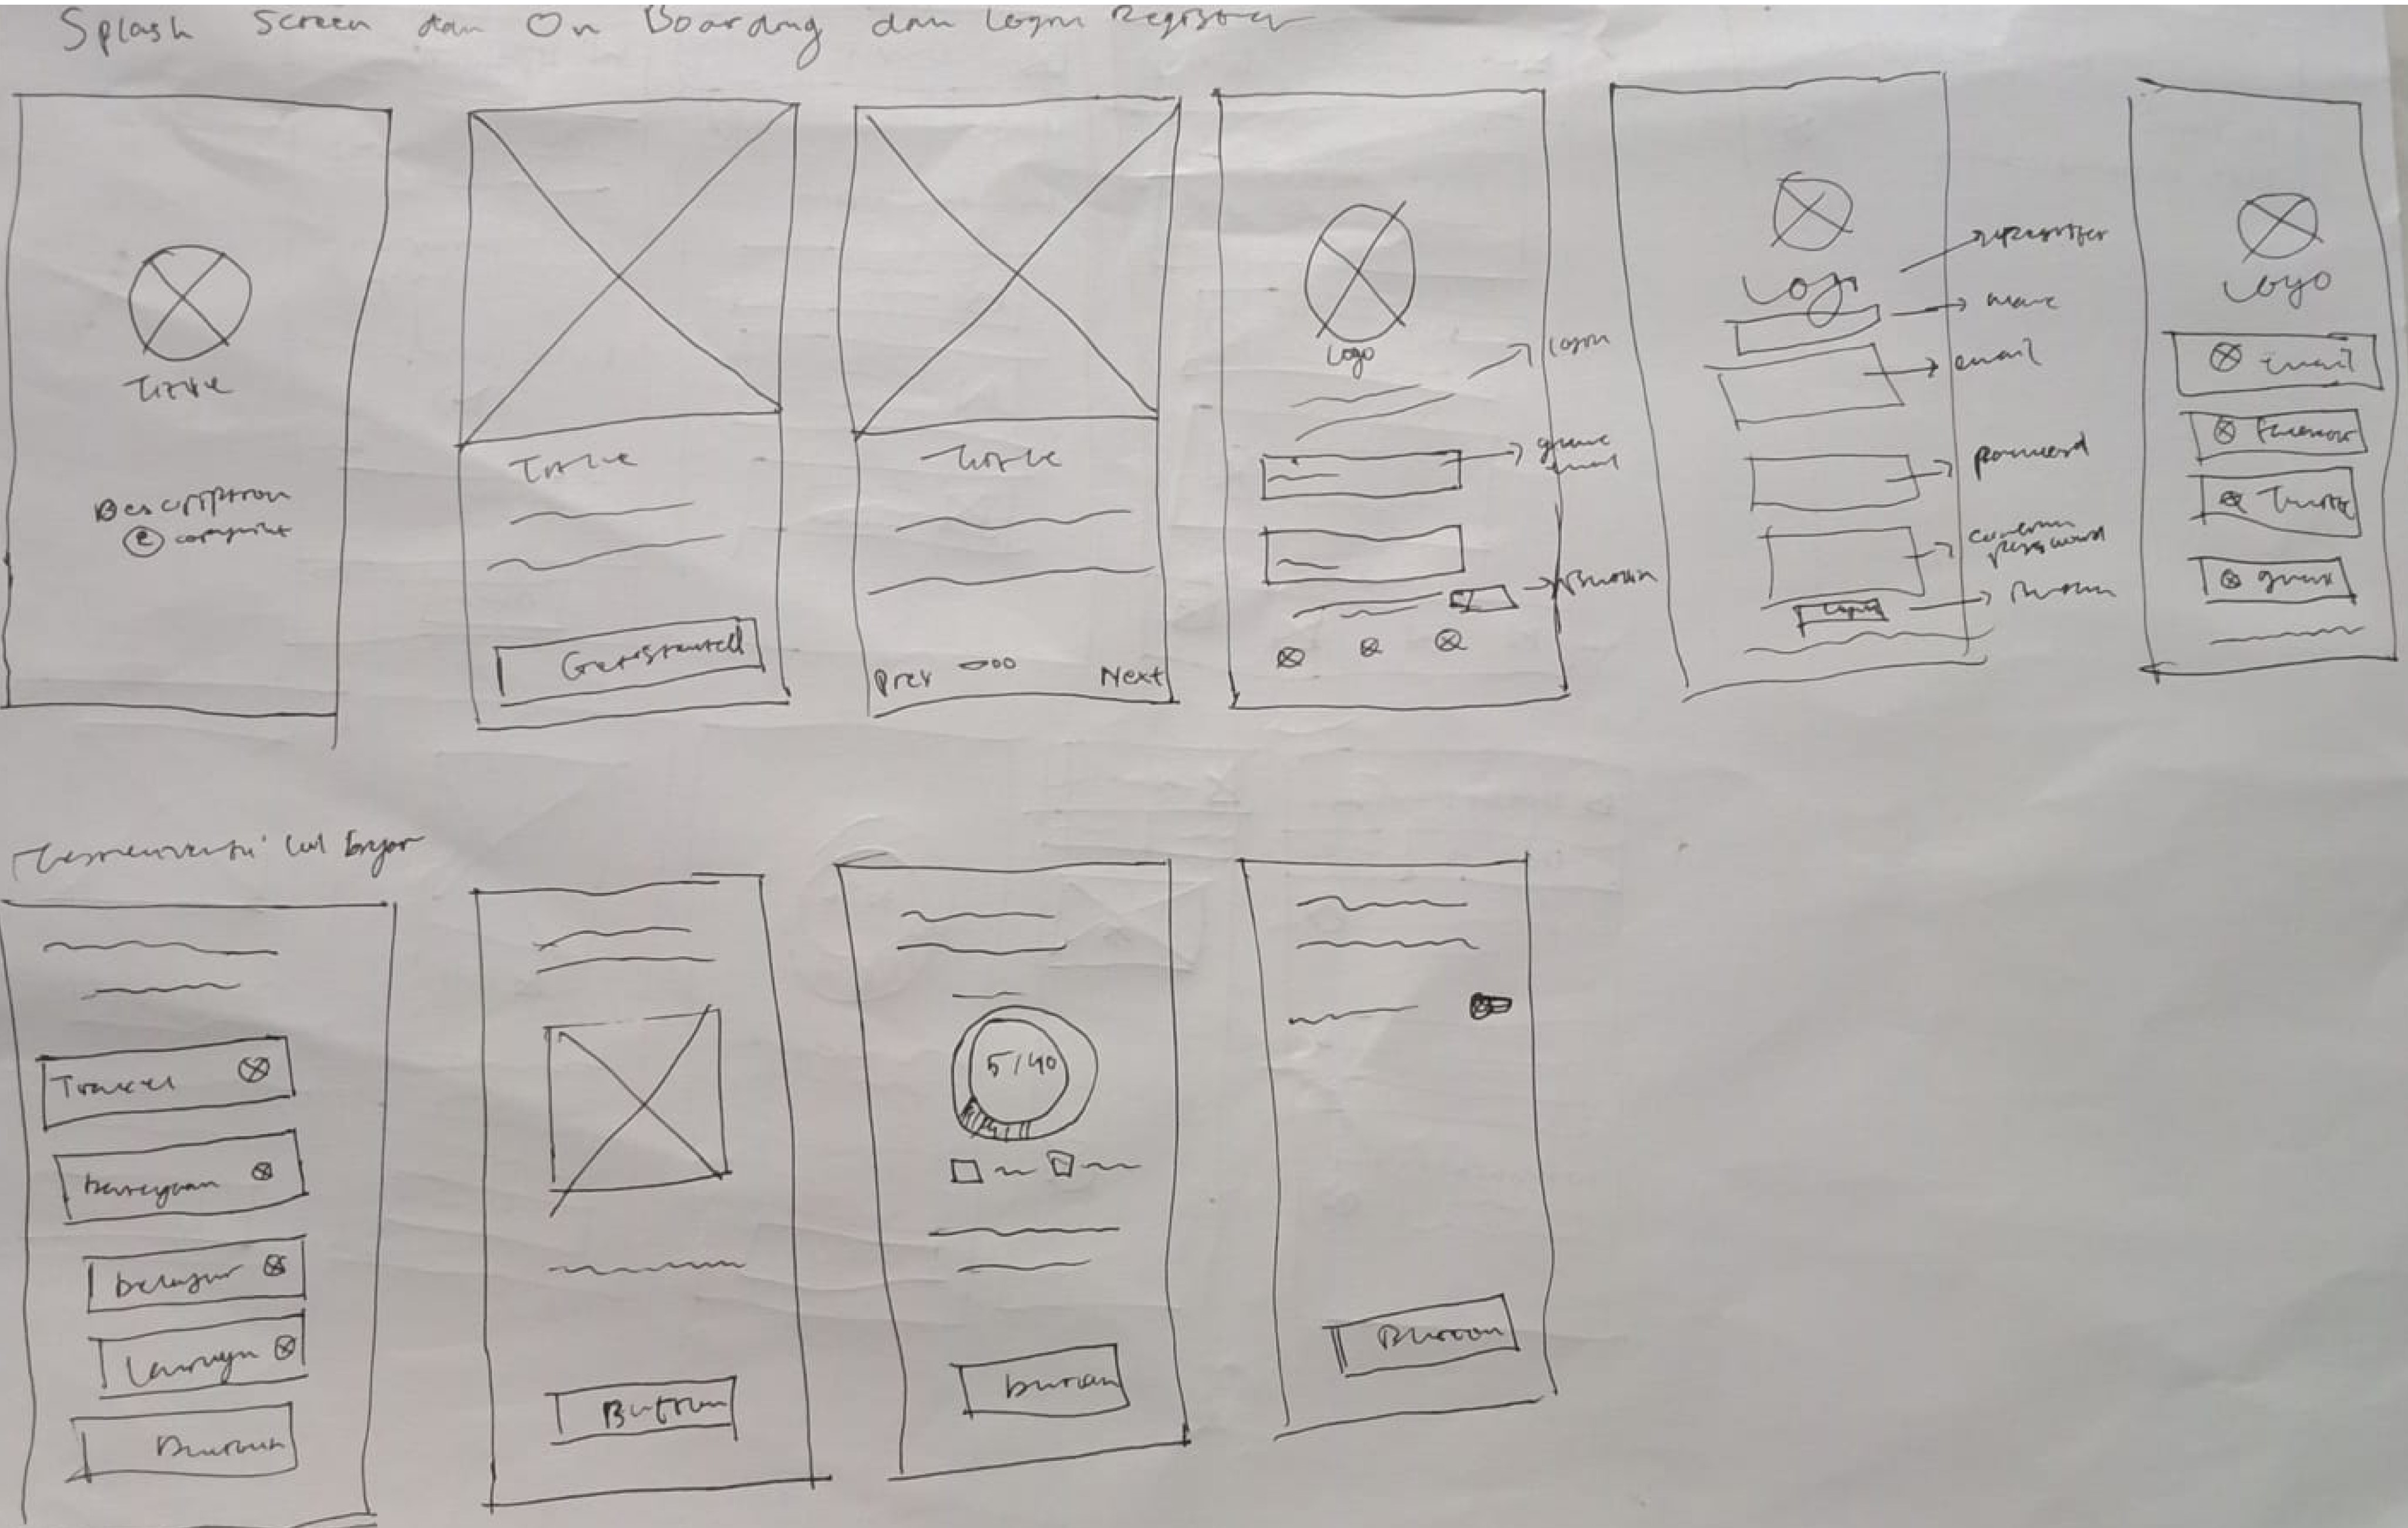 Splash Screen dan On Boarding dan Login Register
Title
Description
© copyright
Title
Get Started
Title
Prev
Next
Logo
login
email
Button
Logo
register
name
email
password
confirm password
Button
Login
Logo
Email
Facebook
Twitter
Travel
belajar
Button
Button
5/40
button
Button